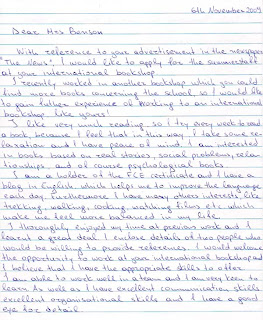 6th November 2009
Dear Mrs Benson
With reference to your advertisement in the newspaper
"The News", I would like to apply for the summer staff
at your international bookshop.
I recently worked in another bookshop which you could
find more books concerning the school, so I would like
to gain futher experience of working to an international
bookshop like yours!
I like very much reading so I try every week to read
a book, because I feel that in this way I take some re-
laxation and I have peace of mind. I am interested
in books based on real stories, social problems, rela-
tionships, and of course psychological books
I am a holder of the FCE certificate and I have a
blog in English which helps me to improve the language
each day. Furthermore I have many others interests, like
trekking, walking, cooking, watching films etc which
make me feel more balanced in my life.
I thoroughly enjoyed my time at previous work and I
learnt a great deal. I enclose details of two people who
would be willing to provide references. I would welcome
the opportunity to work at your international bookshop and
I believe that I have the appropriate skills to offer.
I am able to work well in a team and I am very keen to
learn. As well as I have excellent communication skills
excellent organisational skills and I have a good
eye for detail